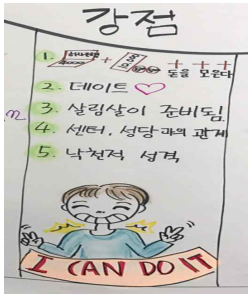 강점
1. + + + +
돈을 모은다
2. 데이트 ♡
3. 살림살이 준비됨
4. 센터, 성당과의 관계
5. 낙천적 성격
I CAN DO IT